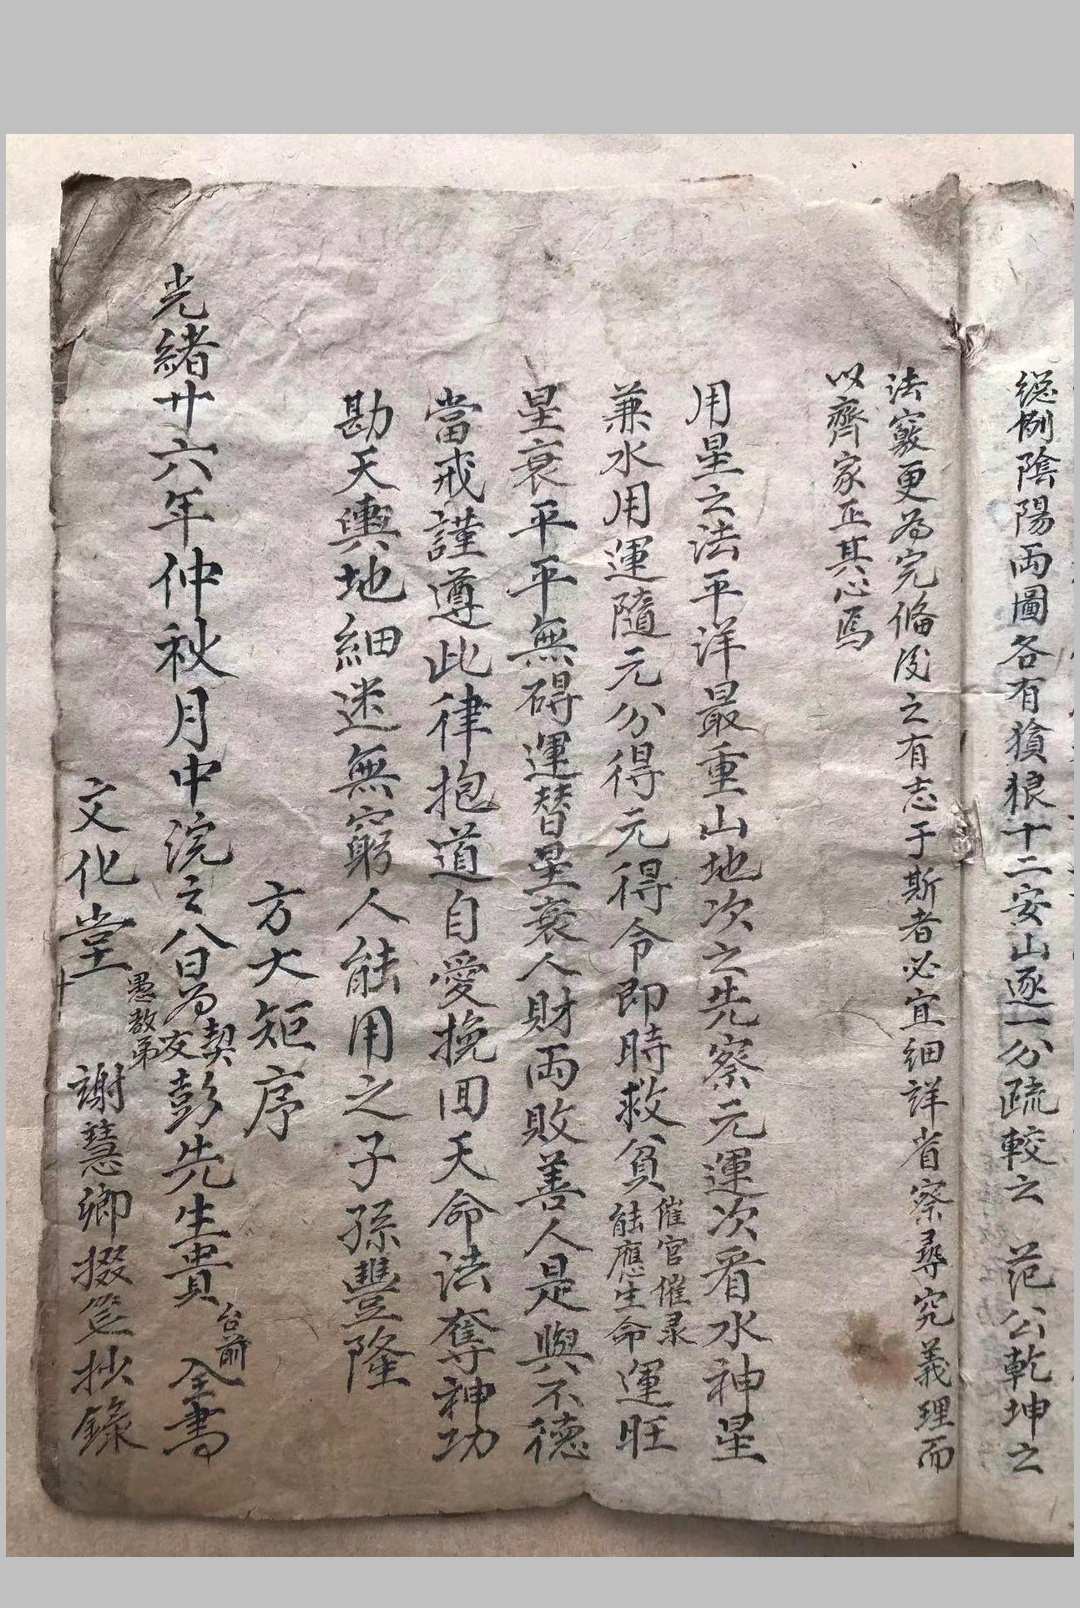 総例陰陽両圖各有獖狼十二安山逐一分疏較云 范公乾坤之
法竅更為完俻後之有志于斯者必宜細詳省察尋究義理而
以齊家正其心焉
用星之法平洋最重山地次之先察元運次看水神星
兼水用運隨元分得元得令即時救貧催官催录能應生命運旺
星衰平平無碍運替星衰人財両敗善人是與不德
當戒謹遵此律抱道自愛挽回天命法奪神功
勘天輿地細迷無窮人能用之子孫豐隆
方大矩序
光緒廿六年仲秋月中浣之八日為契友彭先生貴台前全書
文化堂愚教弟謝慧卿掇筆抄錄